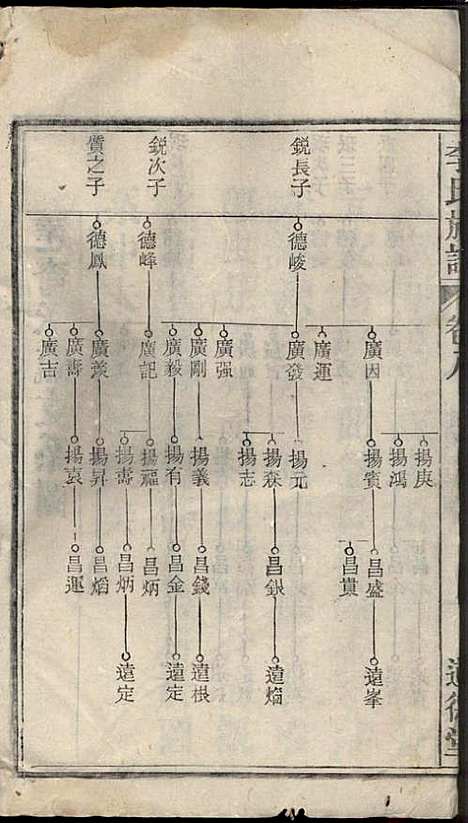 李氏族譜 卷九
銳長子 銳次子 質之子
德峻 德峰 德鳳
廣因 廣運 廣發 廣强 廣剛 廣毅 廣記 廣羨 廣壽 廣吉
揚庚 揚鴻 揚賓 揚元 揚森 揚志 揚義 揚有 揚福 揚壽 揚昇 揚袁
昌盛 昌貴 昌銀 昌錢 昌金 昌炳 昌炳 昌焰 昌運
遠峯 遠焰 遠根 遠定 遠定
道德堂